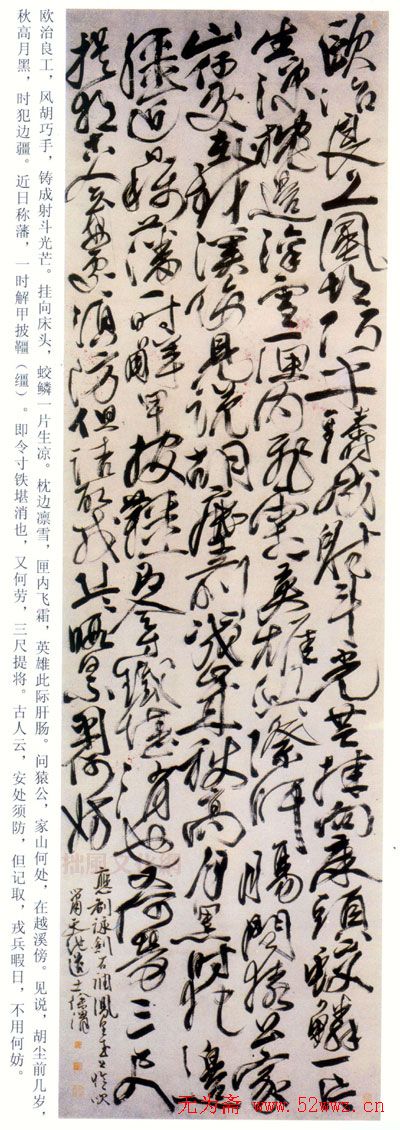 歐冶良工風胡巧手鑄成射斗光芒挂向床頭蛟鱗一片
生涼枕邊凜雪匣內飛霜英雄此際肝腸問猿公家
山何處在越溪傍見說胡塵前幾歲秋高月黑時犯邊
疆近日稱藩一時解甲披韁即令寸鐵堪消也又何勞三尺
提將古人云安處須防但詰取戎兵暇日不用何妨
應制詠劍右調鳳皇臺上憶吹
簫 天池道士徐渭
欧治良工，风胡巧手，铸成射斗光芒。挂向床头，蛟鳞一片生凉。枕边凛雪，匣内飞霜，英雄此际肝肠。问猿公，家山何处，在越溪傍。见说，胡尘前几岁，
秋高月黑，时犯边疆。近日称藩，一时解甲披韁（缰）。即令寸铁堪消也，又何劳，三尺提将。古人云，安处须防，但记取，戎兵暇日，不用何妨。
拙風文化網
无为斋 www.52wwz.cn